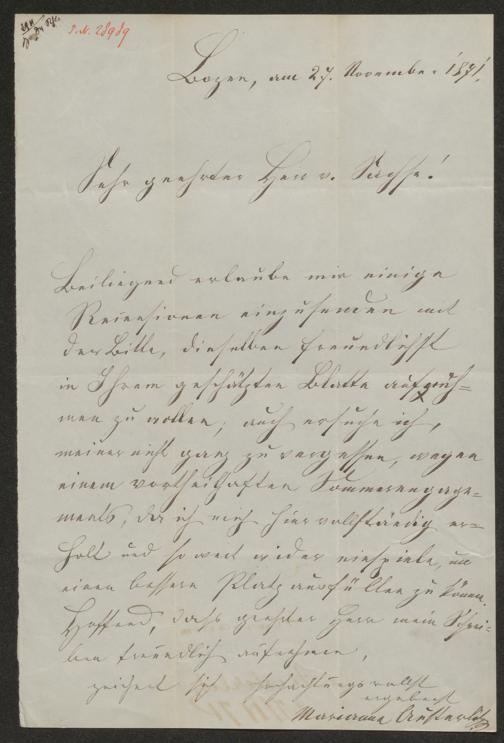 I.N. 28989
Bozen, am 27. November 1871.
Sehr geehrter Herr v. Sachse!
Beiliegend erlaube mir einige
Recensionen einzusenden mit
der Bitte, dieselben freundlichst
in Ihrem geschätzten Blatte aufzuneh=
men zu wollen; auch ersuche ich,
meiner nicht ganz zu vergessen, wegen
einem vortheilhaften Sommerengage=
ments, da ich mich hier vollständig er=
holt und so weit wieder einspiele, um
einen bessern Platz ausfüllen zu können.
Hoffend, dass geehrter Herr mein Schrei=
ben freundlich aufnehmen,
zeichnet sich hochachtungsvollst
ergebenst
Marianna Austerlitz